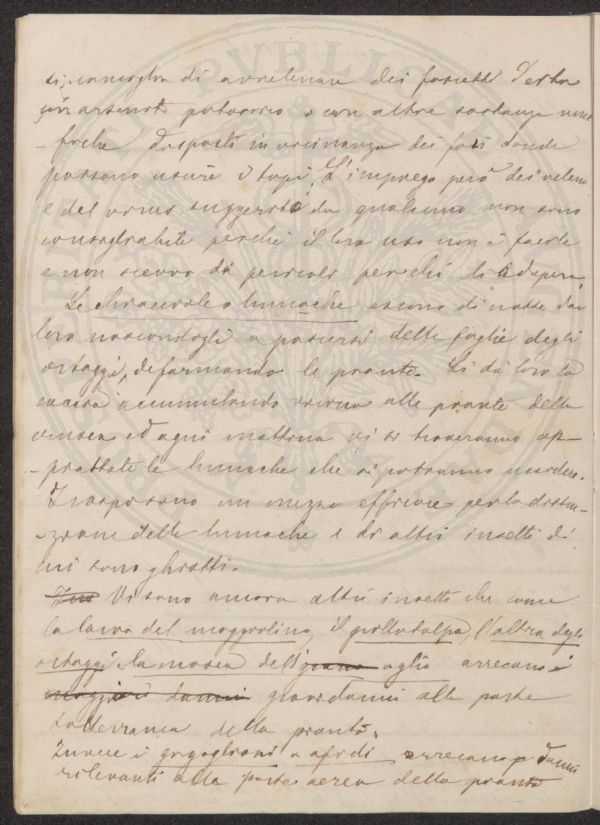 si consiglia di avvelenare dei pezzetti d'erba
con arseniato potassico o con altre sostanze vene
- fiche disposti in vicinanza dei fori donde
possono uscire i topi. L'impiego però dei veleni
e del virus suggeriti da qualcuno non sono
consigliabili perchè il loro uso non è facile
e non scevro di pericoli per chi li adopera.
Le chiocciole o lumache escono di notte dai
loro nascondigli a pascersi delle foglie degli
ortaggi, deformando le piante. Si dà loro la
caccia accumulando vicino alle piante della
crusca ed ogni mattina vi si troveranno ap-
- piattate le lumache che si potranno uccidere.
I rospi sono un mezzo efficace per la distru-
- zione delle lumache e di altri insetti di
cui sono ghiotti.
Vi sono ancora altri insetti che come
la larva del maggiolino, il grillotalpa, l'altica degli
ortaggi la mosca dell' aglio arrecano
maggiori danni gravi danni alla parte
sotterranea della pianta.
Invece i gorgoglioni o afidi arrecano danni
rilevanti alla parte aerea della pianta